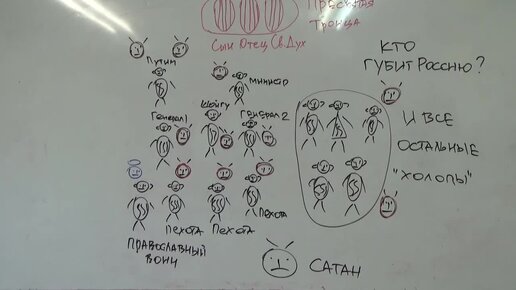 Пресвятая
Троица
Сын Отец Св. Дух
КТО
ГУБИТ РОССИЮ?
Путин
Министр
Шойгу
Генерал 1
Генерал 2
И ВСЕ
ОСТАЛЬНЫЕ
"ХОЛОПЫ"
Пехота
Пехота Пехота
Православный
воин
САТАН